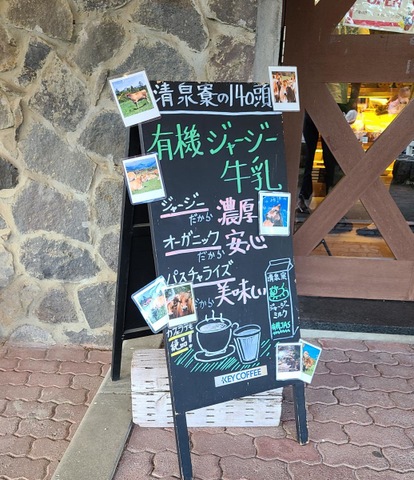 清泉寮の140頭
有機ジャージー
牛乳
ジャージー
だから 濃厚
オーガニック
だから 安心
パスチャライズ
だから 美味しい
清泉寮
ジャージー
ミルク
有機JAS
カフェラテも
絶品!
KEY COFFEE